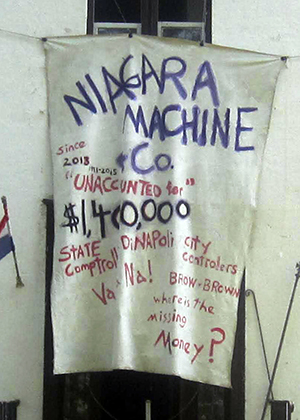 NIAGARA
MACHINE
& Co.
since
2013
"UNACCOUNTED for"
$1,400,000
STATE DiNAPoli city
Comptroll controlers
Va Na! BROW+BROWN
where is the
missing
Money?